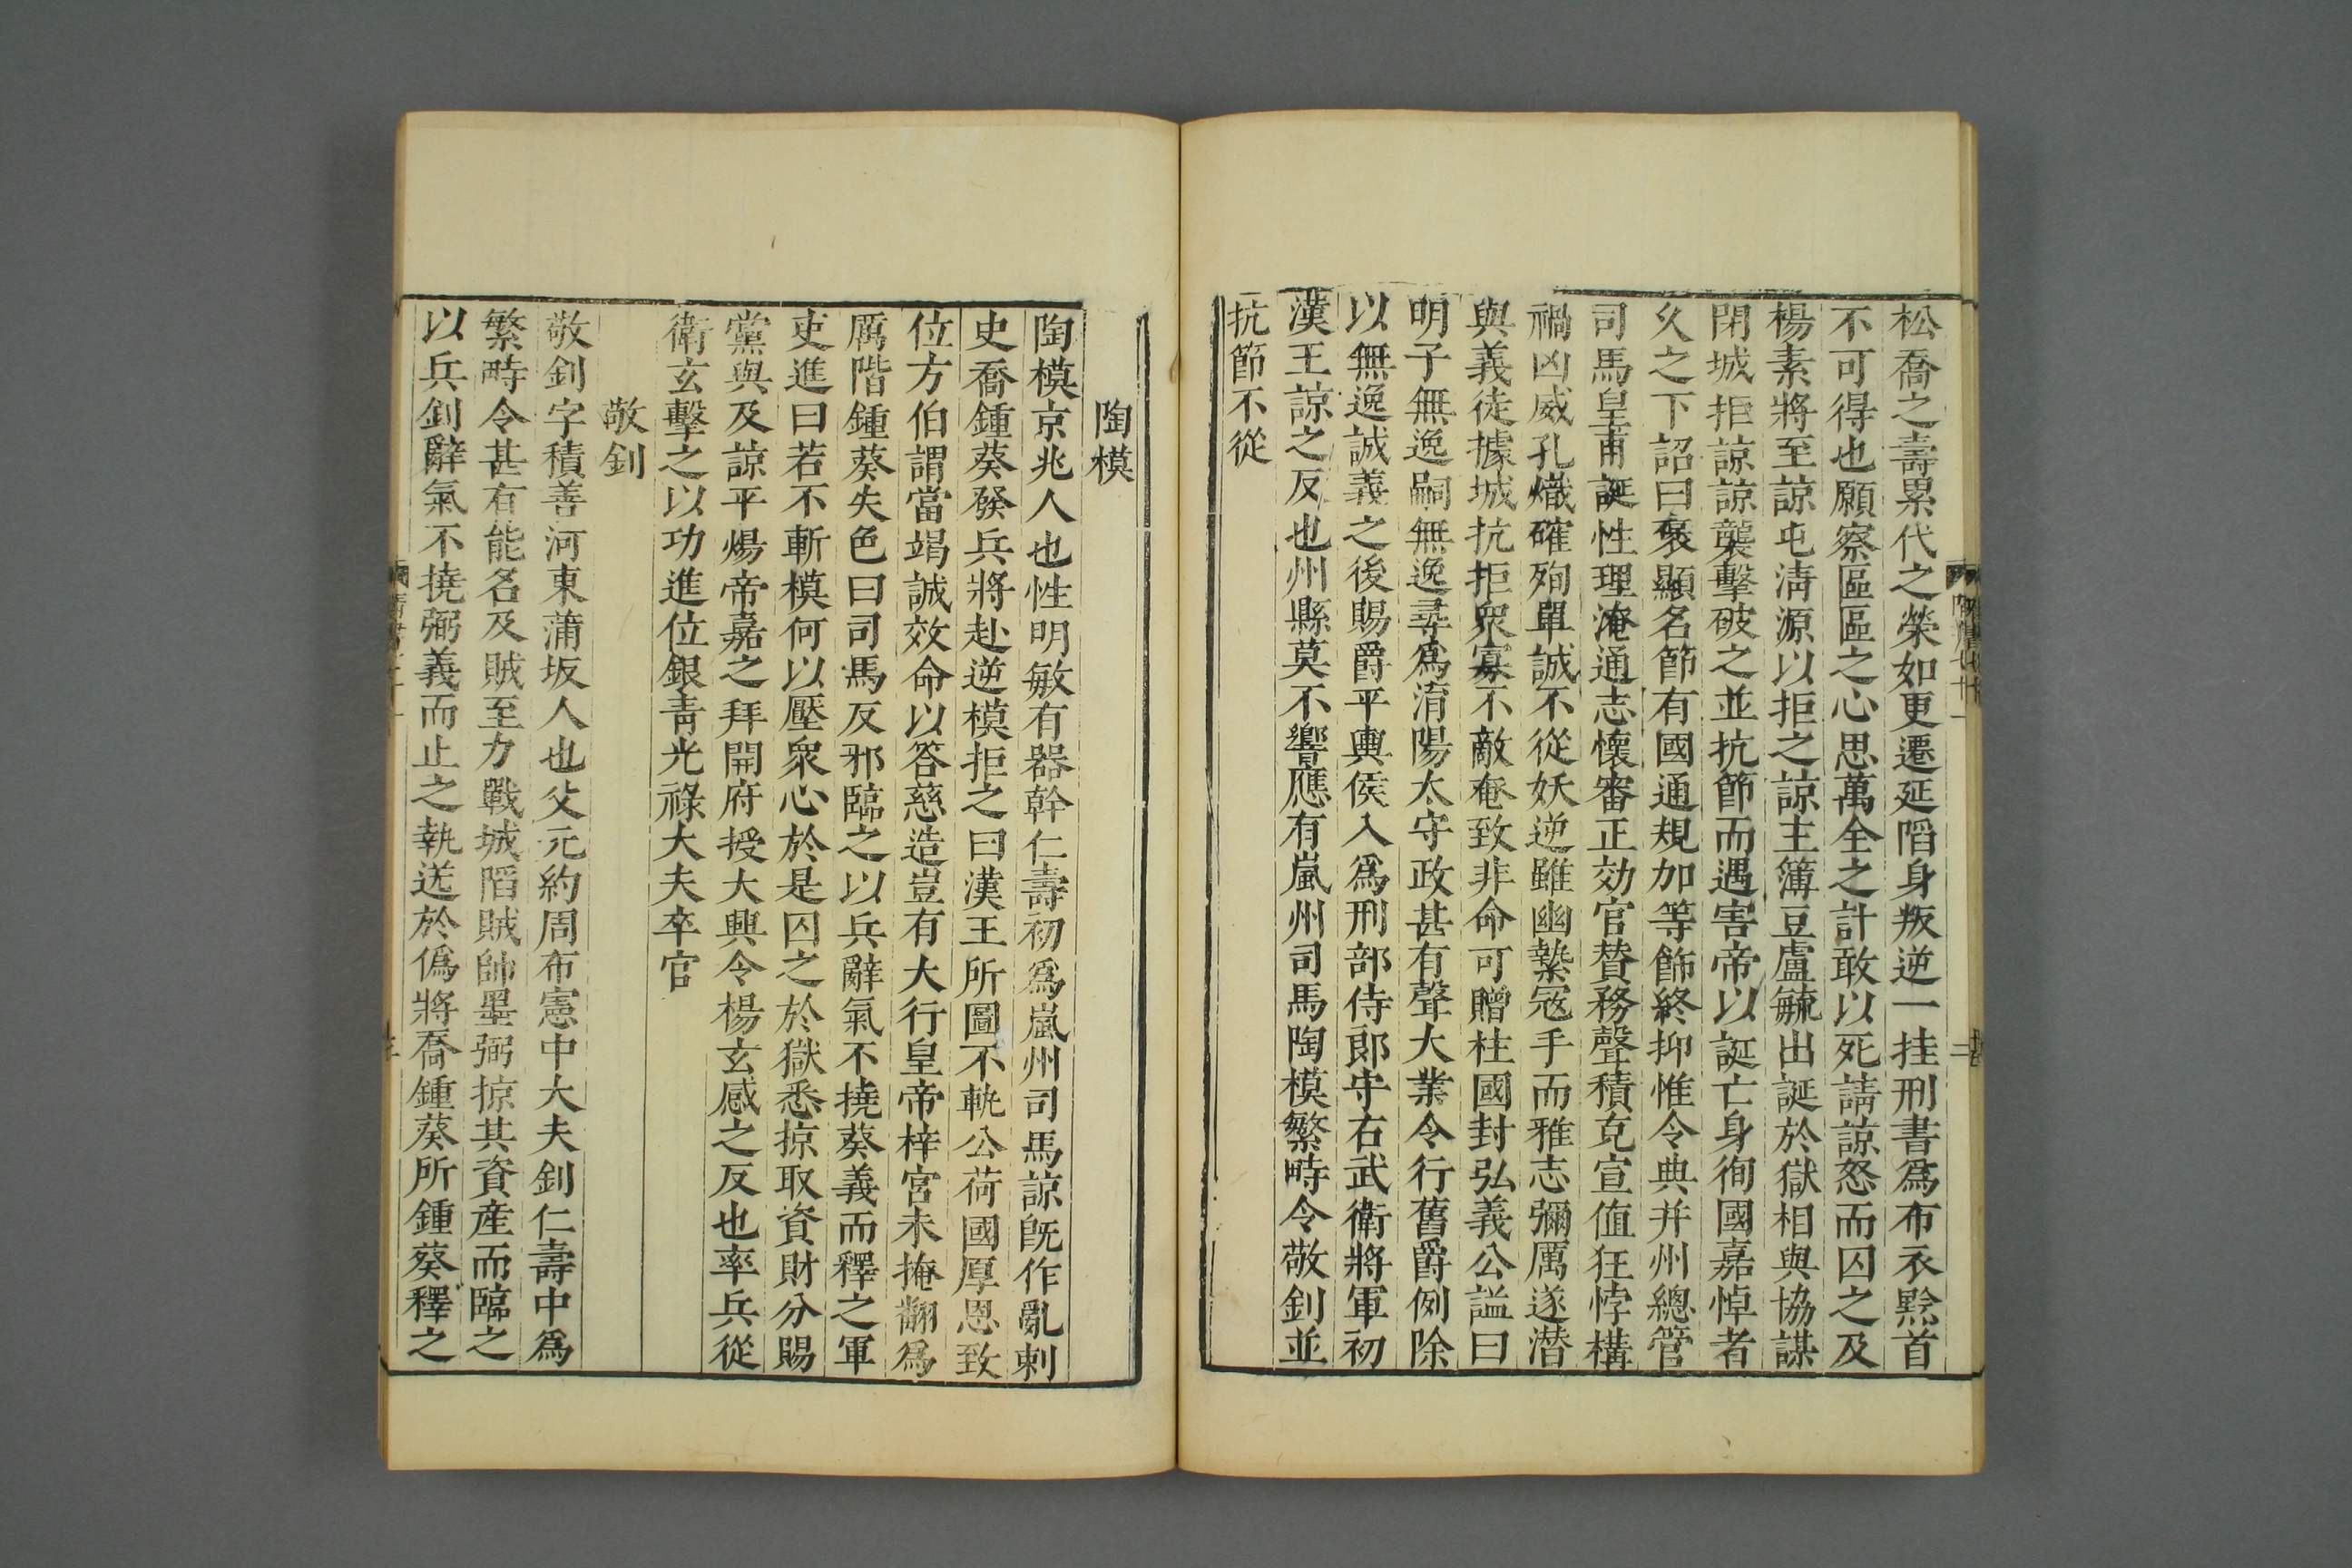 松喬之壽累代之榮如更遷延䧟身叛逆一挂刑書爲布衣黔首
不可得也願察區區之心思萬全之計敢以死請諒怒而囚之及
楊素將至諒屯淸源以拒之諒主簿豆盧毓出誕於獄相與協謀
閉城拒諒諒襲擊破之並抗節而遇害帝以誕亡身徇國嘉悼者
久之下詔曰褒顯名節有國通規加等飾終抑惟令典并州總管
司馬皇甫誕性理淹通志懷審正効官贊務聲積克宣值狂悖構
禍凶威孔熾確殉單誠不從妖逆雖幽縶寇手而雅志彌厲遂潛
與義徒據城抗拒衆寡不敵奄致非命可贈柱國封弘義公謚曰
明子無逸嗣無逸尋爲淯陽太守政甚有聲大業令行舊爵例除
以無逸誠義之後賜爵平輿侯入爲刑部侍郎守右武衛將軍初
漢王諒之反也州縣莫不響應有嵐州司馬陶模繁畤令敬釗並
抗節不從
陶模
陶模京兆人也性明敏有器幹仁壽初爲嵐州司馬諒旣作亂刺
史喬鍾葵發兵將赴逆模拒之曰漢王所圖不軌公荷國厚恩致
位方伯謂當竭誠效命以答慈造豈有大行皇帝梓宮未掩翻爲
厲階鍾葵失色曰司馬反邪臨之以兵辭氣不撓葵義而釋之軍
吏進曰若不斬模何以壓衆心於是囚之於獄悉掠取資財分賜
黨與及諒平煬帝嘉之拜開府授大興令楊玄感之反也率兵從
衛玄擊之以功進位銀靑光祿大夫卒官
敬釗
敬釗字積善河東蒲坂人也父元約周布憲中大夫釗仁壽中爲
繁畤令甚有能名及賊至力戰城䧟賊帥墨弼掠其資産而臨之
以兵釗辭氣不撓弼義而止之執送於僞將喬鍾葵所鍾葵釋之